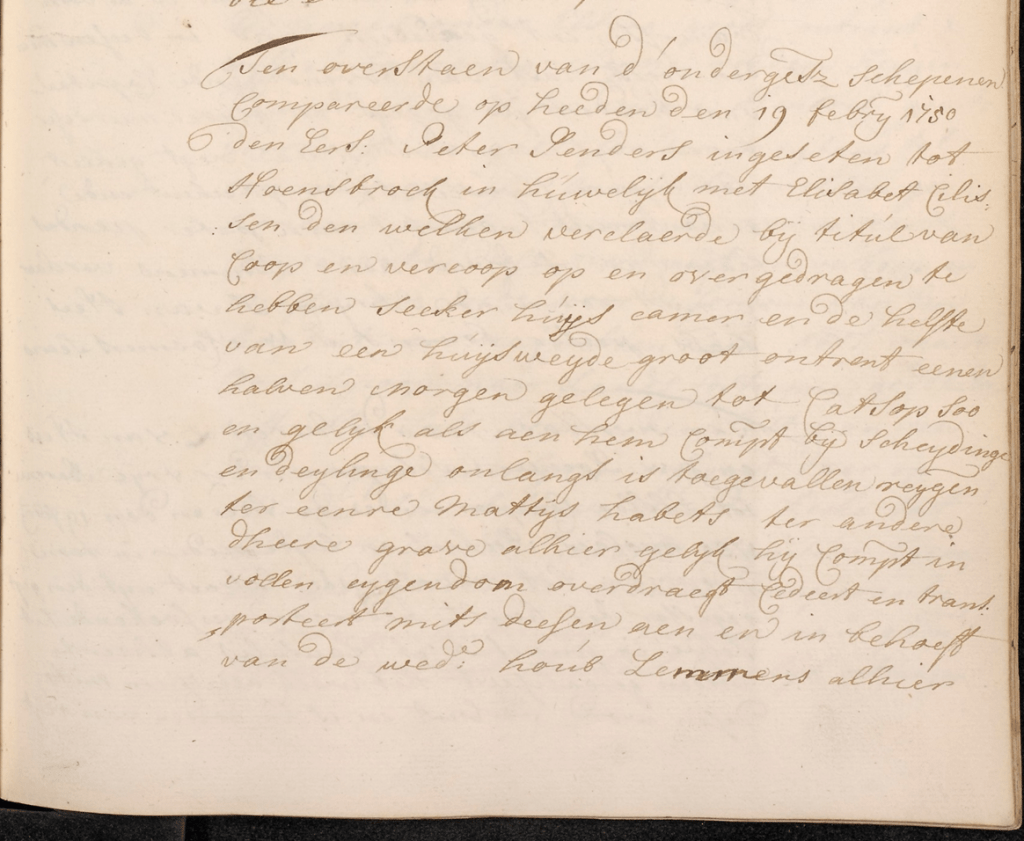 Ten overstaen van d' ondergetz schepenen
Compareerde op heeden den 19 febry 1750
den Eers: Peter Penders ingeseten tot
Hoensbroek in húwelijk met Elisabet Cilis:
:sen den welken verclaerde bij titúl van
Coop en vercoop op en overgedragen te
hebben seeker húijs camer en de helfte
van een húijsweyde groot ontrent eenen
halven morgen gelegen tot Catsop soo
en gelyk als aen hem Compt bij scheydinge
en deylinge onlangs is toegevallen reygen
ter eenre Mattijs habets ter andere
dheere grave alhier gelijk hij Compt in
vollen eygendom overdraegt Cedeert en trans:
:porteert mits deesen aen en in behoeff
van de wede: houb Lemmens alhier